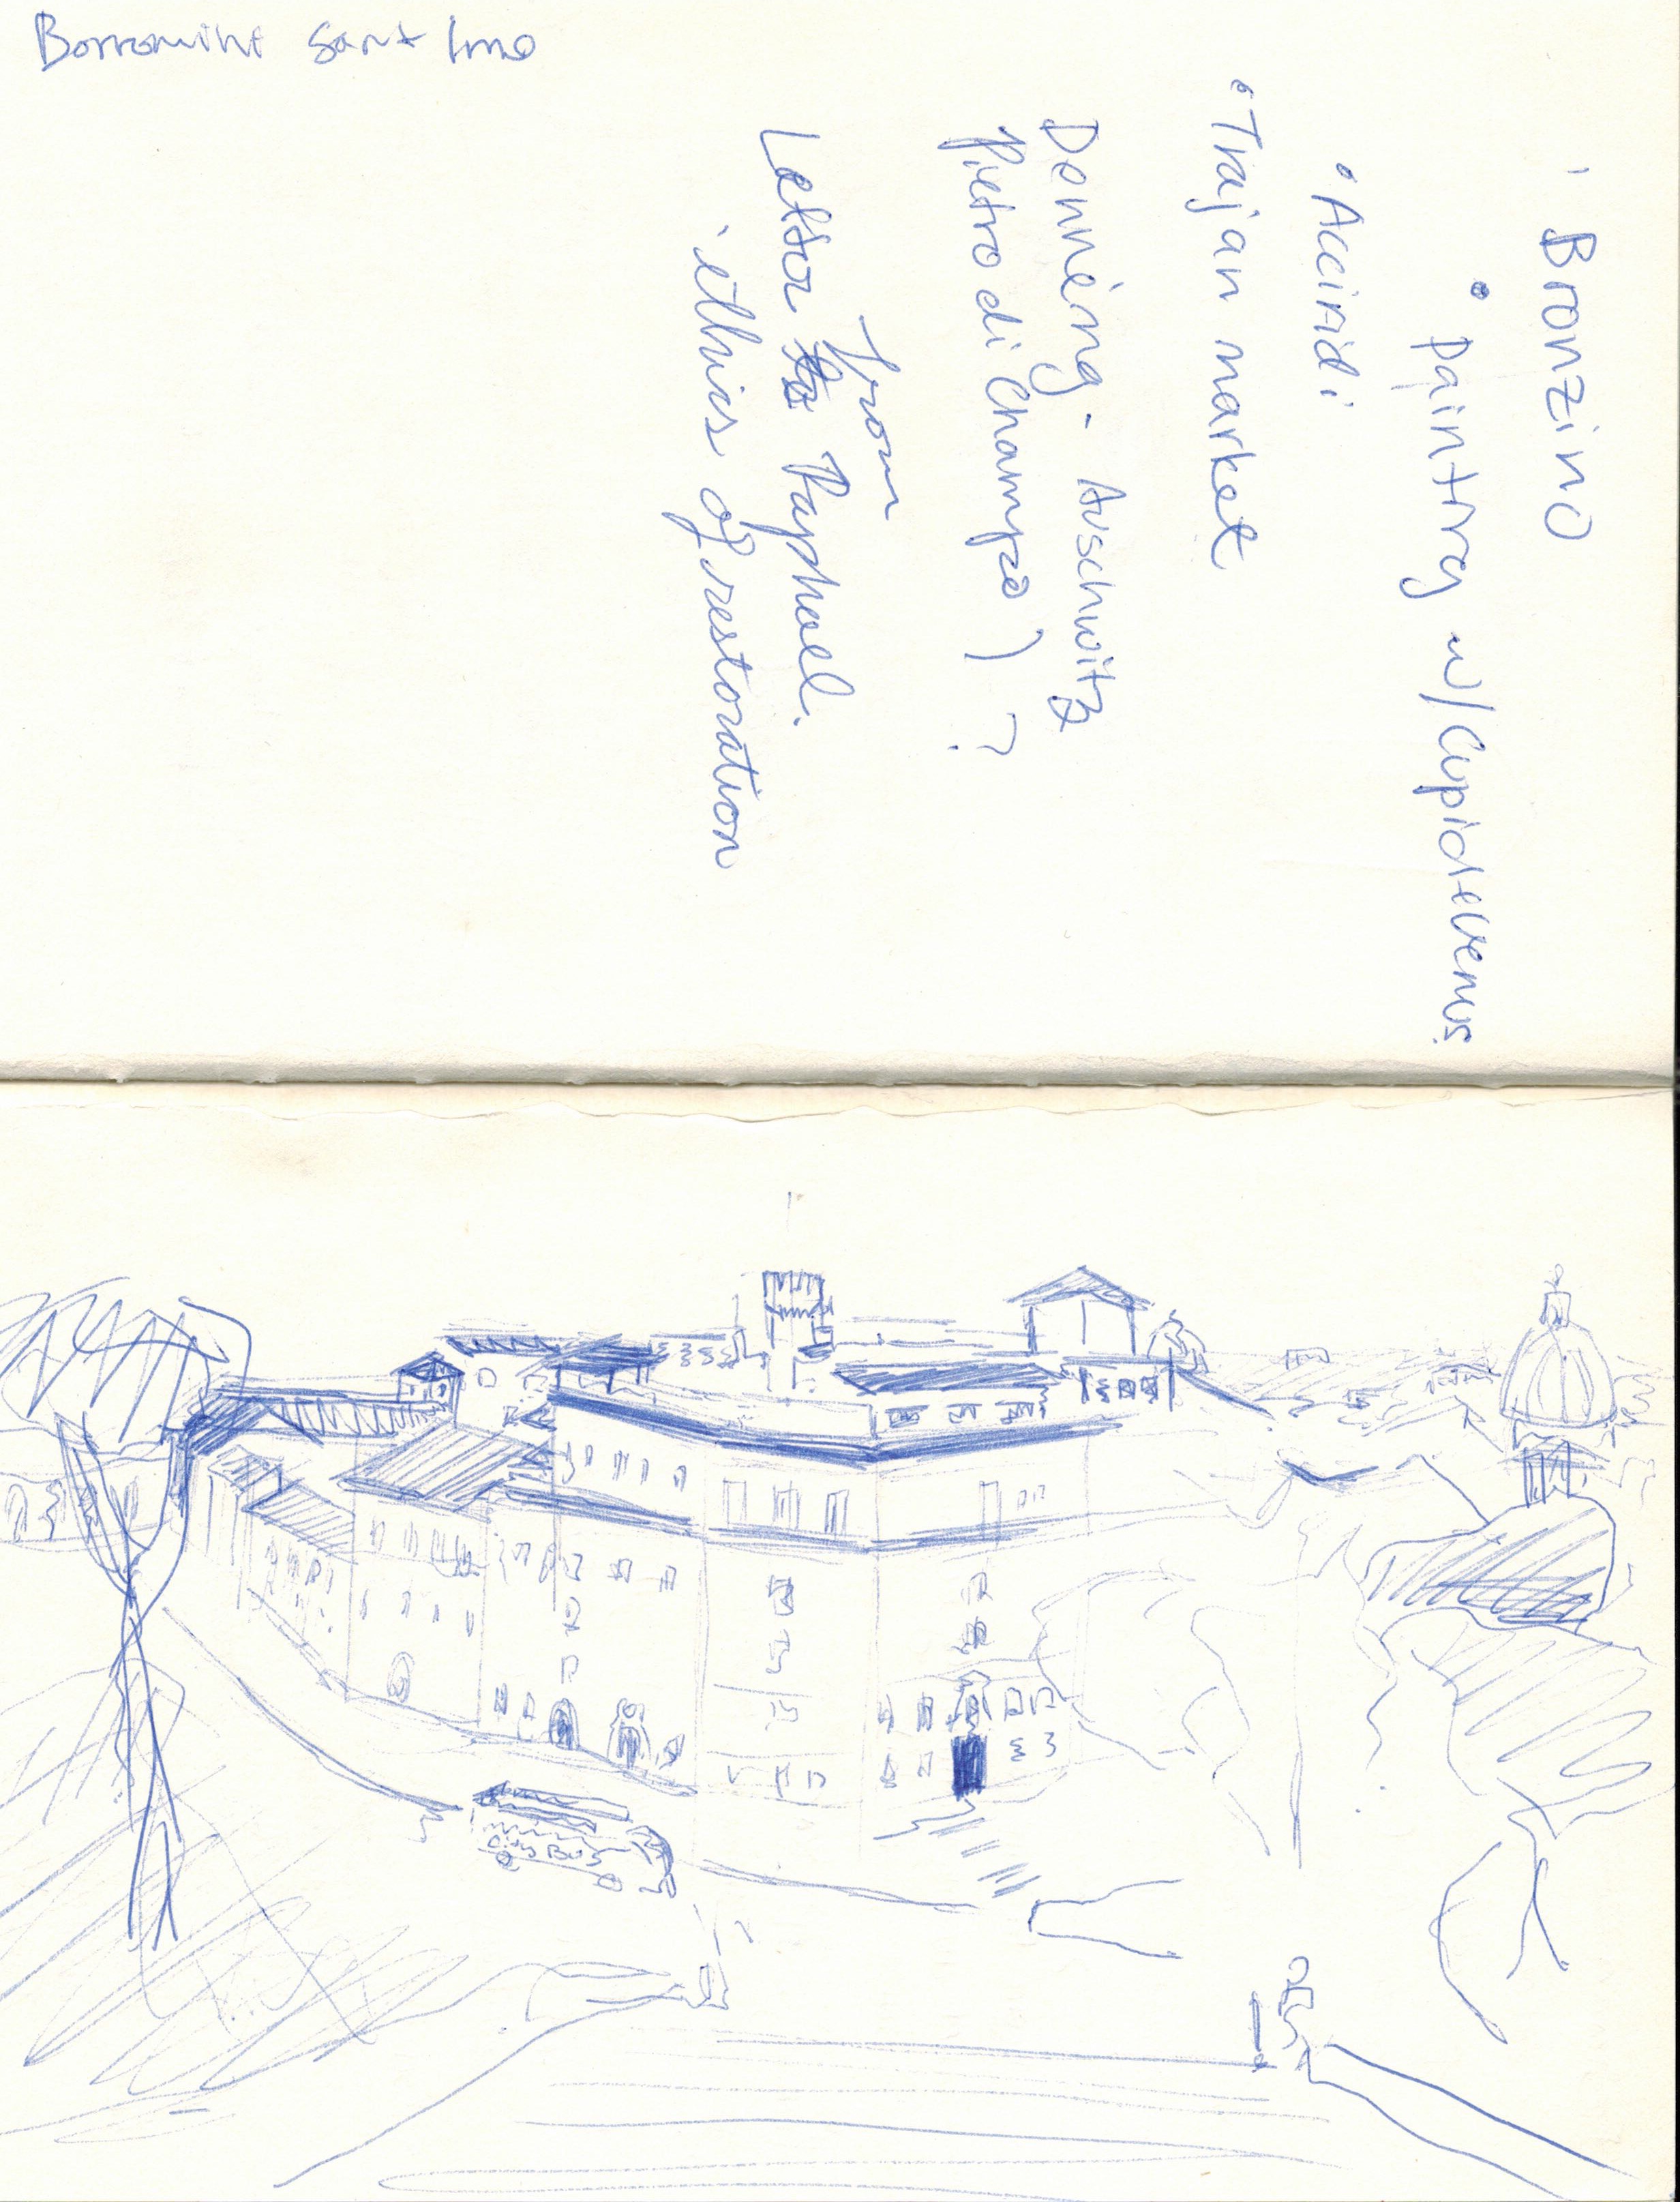 Borromini Sant Ivo
· Bronzino
• painting w/Cupid+Venus
• Accinidi
• Trajan market
Denneny - Auschwitz
Pietro di Champo) ?
from
Letter to Raphael.
· ethics of restoration
City Bus